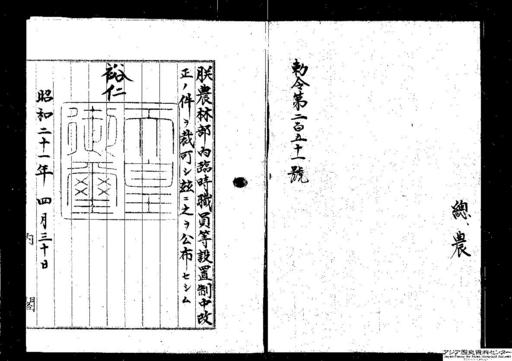 總、農
勅令第二百五十一號
朕農林部内臨時職員等設置制中改
正ノ件ヲ裁可シ玆ニ之ヲ公布セシム
裕仁
天皇御璽
昭和二十一年四月三十日
内閣
アジア歴史資料センター